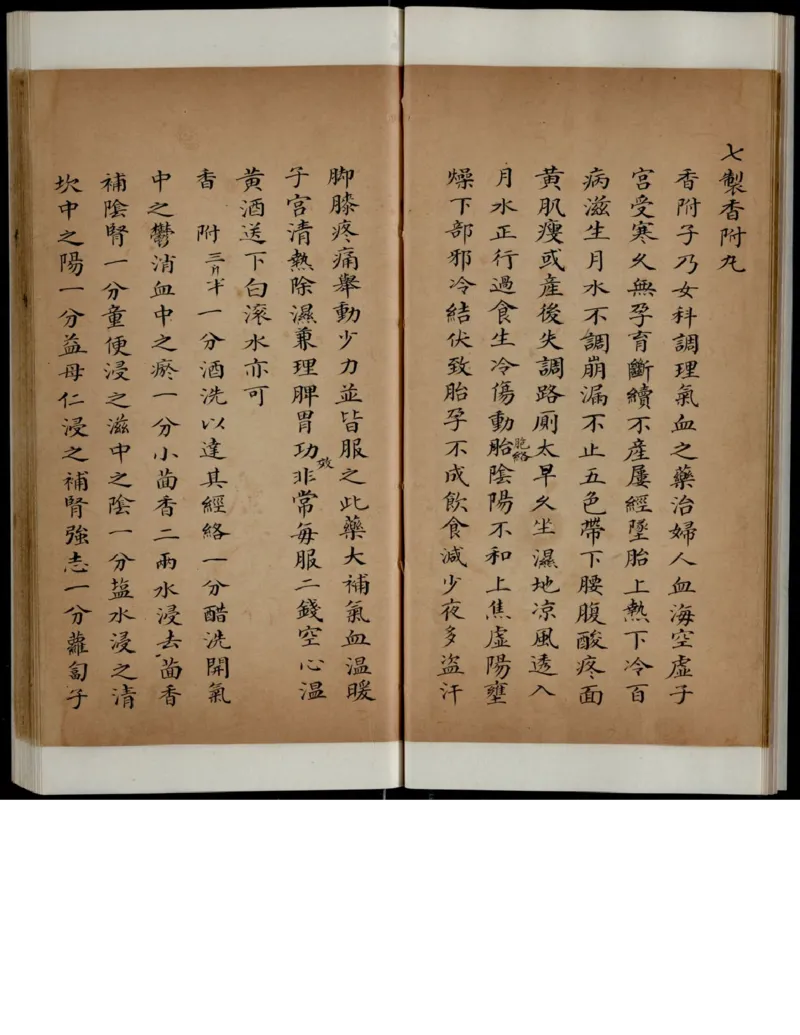 七製香附丸
香附子乃女科調理氣血之藥治婦人血海空虛子
宮受寒久無孕育斷續不產屢經墜胎上熱下冷百
病滋生月水不調崩漏不止五色帶下腰腹酸疼面
黃肌瘦或產後失調路厠太早久坐濕地凉風透入
月水正行過食生冷傷動胎胞絡陰陽不和上焦虛陽壅
燥下部邪冷結伏致胎孕不成飲食減少夜多盜汗
脚膝疼痛舉動少力並皆服之此藥大補氣血温暖
子宮清熱除濕兼理脾胃功效非常每服二錢空心温
黃酒送下白滚水亦可
香附三斤半一分酒洗以達其經絡一分醋洗開氣
中之鬱消血中之瘀一分小茴香二兩水浸去茴香
補陰腎一分童便浸之滋中之陰一分塩水浸之清
坎中之陽一分益母仁浸之補腎強志一分蘿蔔子